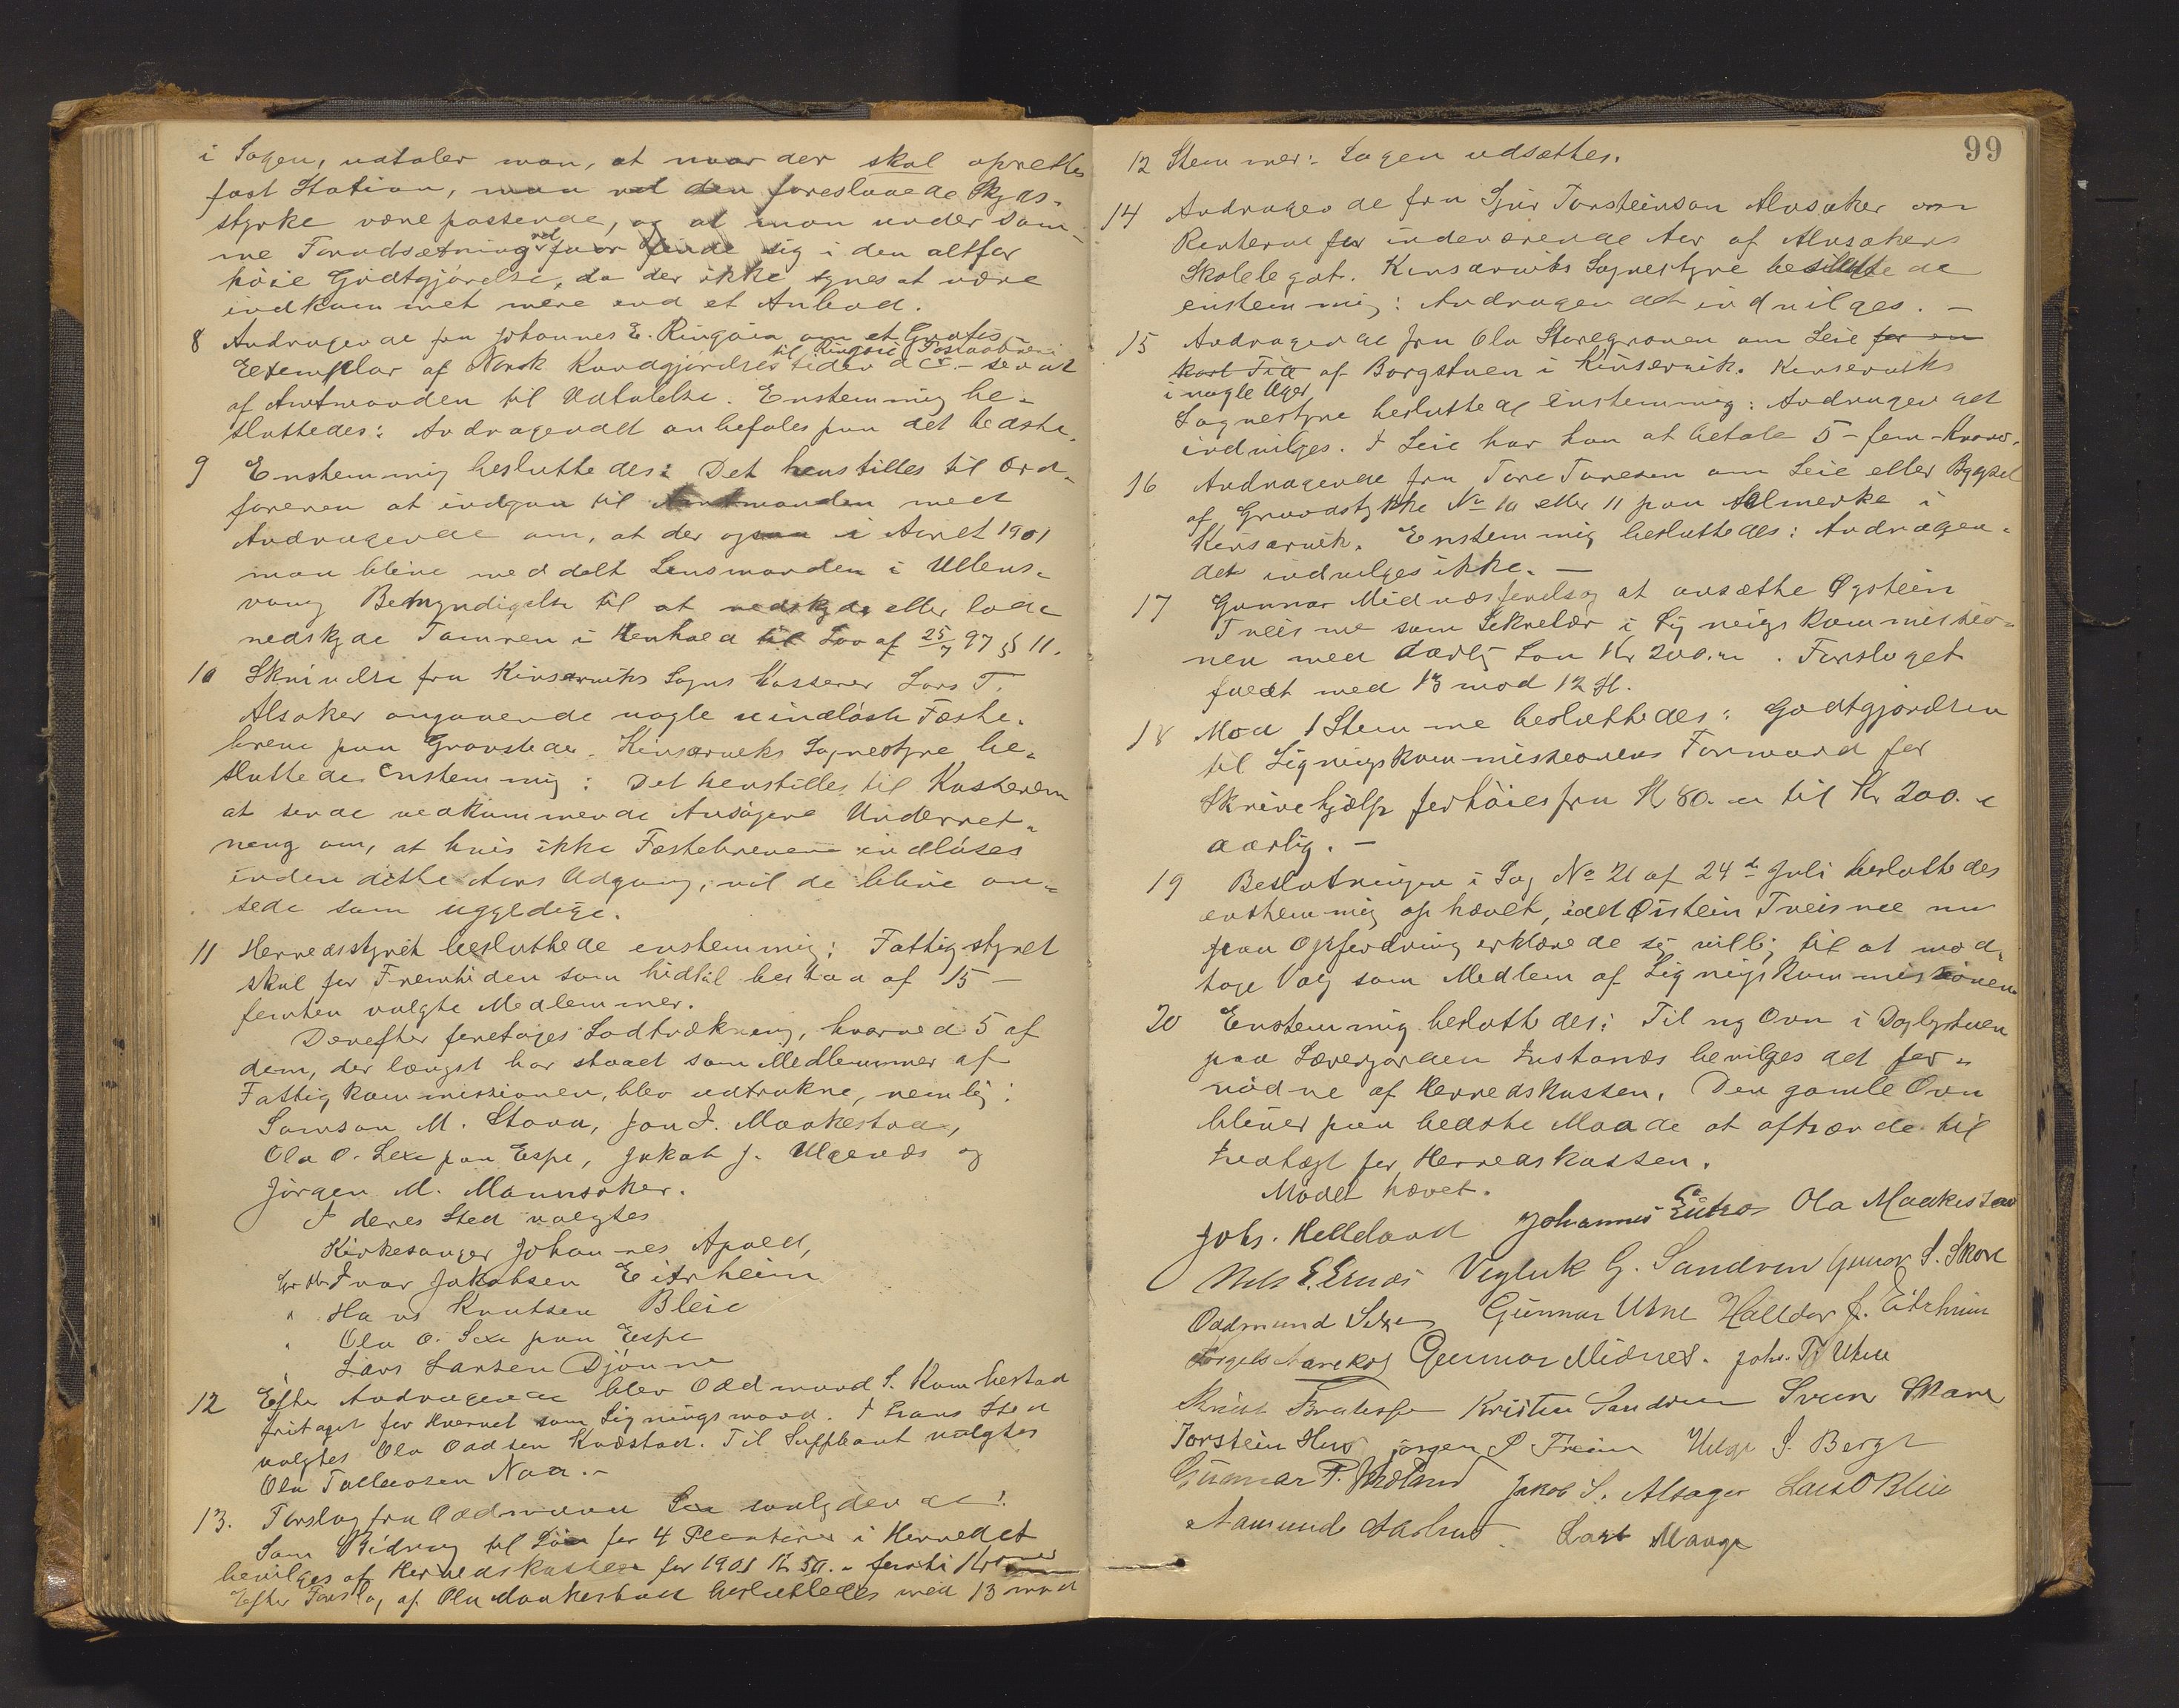 i Sagen, udtaler man, at naar der skal oprettes
fast Station, maa vel den foreslaaede Skyds-
styrke være passende, og at man under sam-
me Forudsætning vel faar finde sig i den altfor
høie Godtgjørelse, da der ikke synes at være
indkommet mere end et Anbud.
8 Andragende fra Johannes E. Ringøen om et Gratis
til Ringøen Postaabneri
Exemplar af Norsk Kundgjørelsestidende - sendt
af Amtmanden til Udtalelse. Enstemmig be-
sluttedes: Andragendet anbefales paa det bedste.
9 Enstemmig besluttedes: Det henstilles til Ord-
føreren at indgaa til Amtmanden med
Andragende om, at der ogsaa i Aaret 1901
maa blive meddelt Lensmanden i Ullens-
vang Bemyndigelse til at nedskyde eller lade
nedskyde Tamren i Henhold til Lov af 25/7 97 § 11.
10 Skrivelse fra Kinserviks Sogns Kasserer Lars T.
Alsaker angaaende nogle uindløste Fæste-
breve paa Gravsteder. Kinserviks Sognestyre be-
sluttede Enstemmig: Det henstilles til Kassereren
at sende vedkommende Ansøgere Underret-
ning om, at hvis ikke Fæstebrevene indløses
inden dette Aars Udgang, vil de blive an-
sede som ugyldige.
11 Herredsstyret besluttede enstemmig: Fattigstyret
skal for Fremtiden som hidtil bestaa af 15 -
femten valgte Medlemmer.
Derefter foretages Lodtrækning, hvorved 5 af
dem, der længst har staaet som Medlemmer af
Fattigkommissionen, blev udtrukne, nemlig:
Samson M. Stana, Jon J. Maakestad,
Ola O. Sexe paa Espe, Jakob J. Ulgenæs og
Jørgen M. Mannsaker.
I deres Sted valgtes
Kirkesanger Johannes Apold,
Grbr. Ivar Jakobsen Eitrheim
" Hans Knutsen Bleie
" Ola O. Sexe paa Espe
" Lars Larsen Djønne
12 Efter Andragende blev Oddmund S. Kambestad
fritaget for Hvervet som Ligningsmand. I hans Sted
valgtes Ola Oddsen Kvæstad. Til Suppleant valgtes
Ola Tollevsen Naa. -
13. Forslag fra Oddmund Sexe saalydende:
Som Bidrag til Løn for 4 Plantører i Herredet
bevilges af Herredskassen for 1901 Kr 50.- femti Kroner
Efter Forslag af Ola Maakestad besluttedes med 13 mod
99
12 Stemmer: Sagen udsættes.
14 Andragende fra Sjur Torsteinson Alvsaker om
Renterne for indeværende Aar af Alvsakers
Skolelegat. Kinserviks Sognestyre besluttede
enstemmig: Andragendet indvilges. -
15 Andragende fra Ola Storegraven om Leie for en
kort Tid af Borgstuen i Kinservik. Kinserviks
i nogle Uger
Sognestyre besluttede Enstemmig: Andragendet
indvilges. I Leie har han at betale 5 - fem - Kroner.
16 Andragende fra Tore Toresen om Leie eller Bygsel
af Grundstykke No 10 eller 11 paa Almerke i
Kinservik. Enstemmig besluttedes: Andragen-
det indvilges ikke. -
17 Gunnar Midnæs foreslog at ansætte Øystein
Tveisme som Sekretær i Ligningskommissio-
nen med aarlig Løn Kr 200.00. Forslaget
faldt med 13 mod 12 St.
18 Mod 1 Stemme besluttedes: Godtgjørelsen
til Ligningskommissionens Formand for
Skrivehjælp forhøies fra Kr 80.00 til Kr 200.00
aarlig. -
19 Beslutningen i Sag No 21 af 24de Juli besluttedes
enstemmig ophævet, idet Øistein Tveisme nu
paa Opfordring erklærede sig villig til at mod-
tage Valg som Medlem af Ligningskommissionen.
20 Enstemmig besluttedes: Til ny Ovn i Dagligstuen
paa Lærergarden Instanes bevilges det for-
nødne af Herredskassen. Den gamle Ovn
bliver paa bedste Maade at afhænde til
Indtægt for Herredskassen.
Mødet hævet.
Johs. Helleland Johannes Ola Maakestad
Nils E. Ernæs Vigleik G. Sandven Gunnar S. Skare
Oddmund Sexe Gunnar Utne Halldor J. Eitrheim
Torgels Aarekol Gunnar Midnes. Johs. T. Utne
Knut Kristen Sandven Svein Skare
Torstein Hus Jørgen P. Freim Helge S. Berge
Gunnar P. Jakob S. Alsager Lars O Bleie
Aamund Lars Mauge